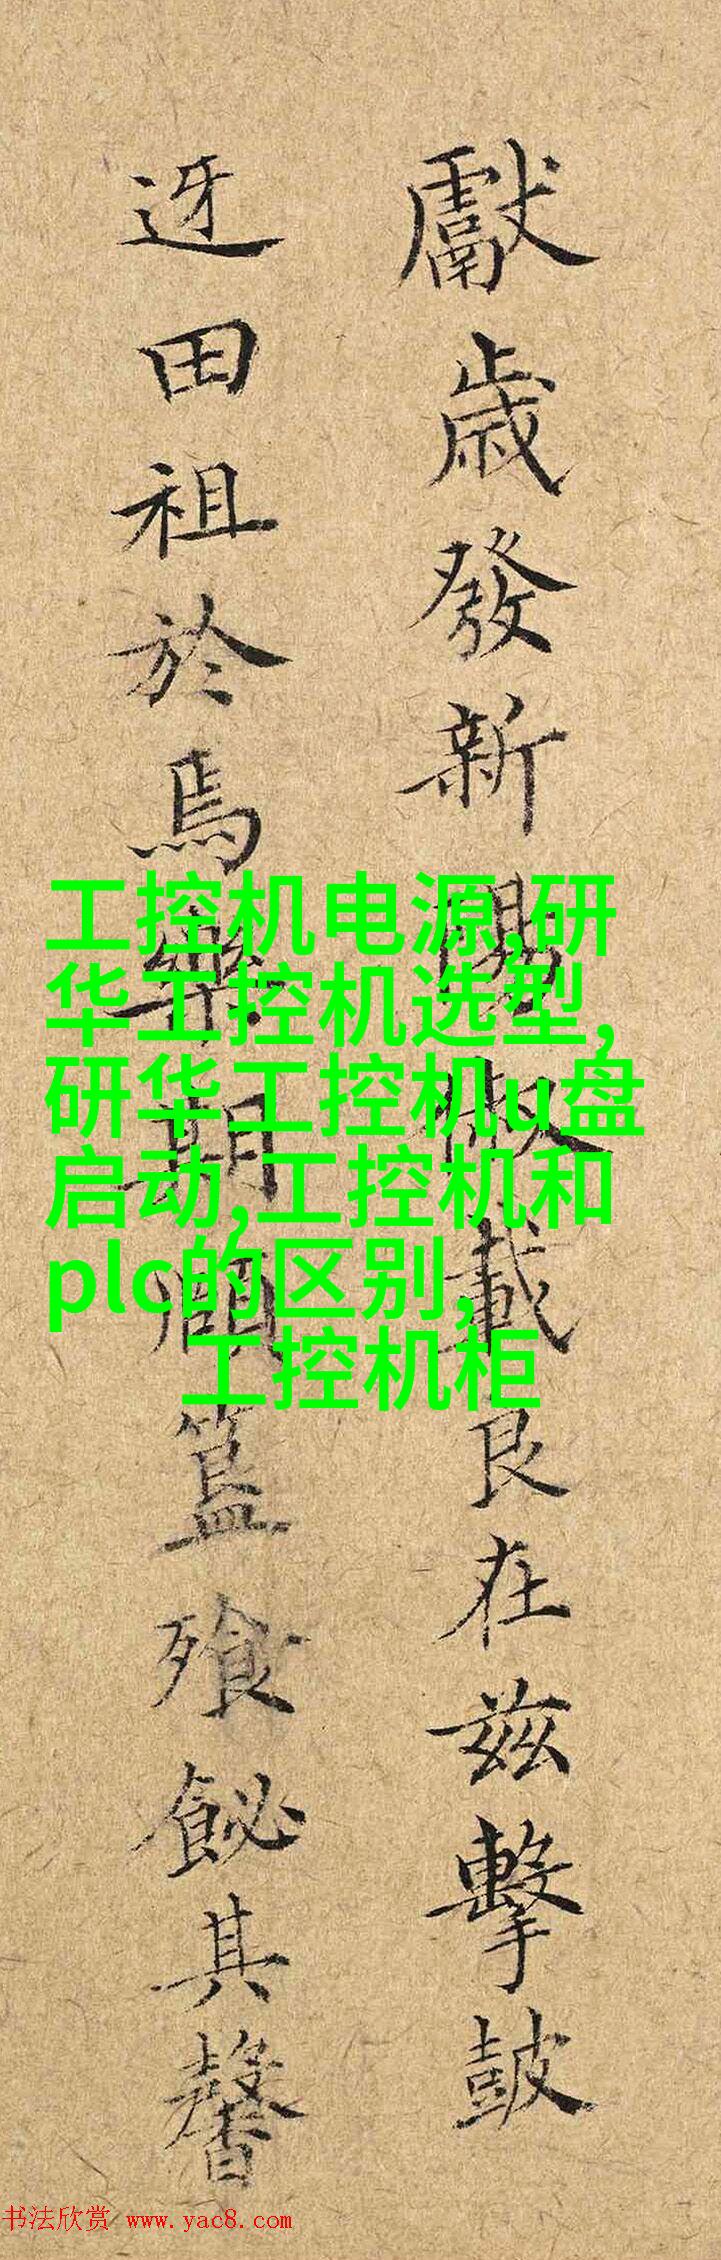 獻歲發新陽俶載良在兹擊鼓
迓田祖於焉樂期頤簋飱飶其馨
工控机电源,研
华工控机选型,
研华工控机u盘
启动,工控机和
plc的区别,
工控机柜
书法欣赏 www.yac8.com